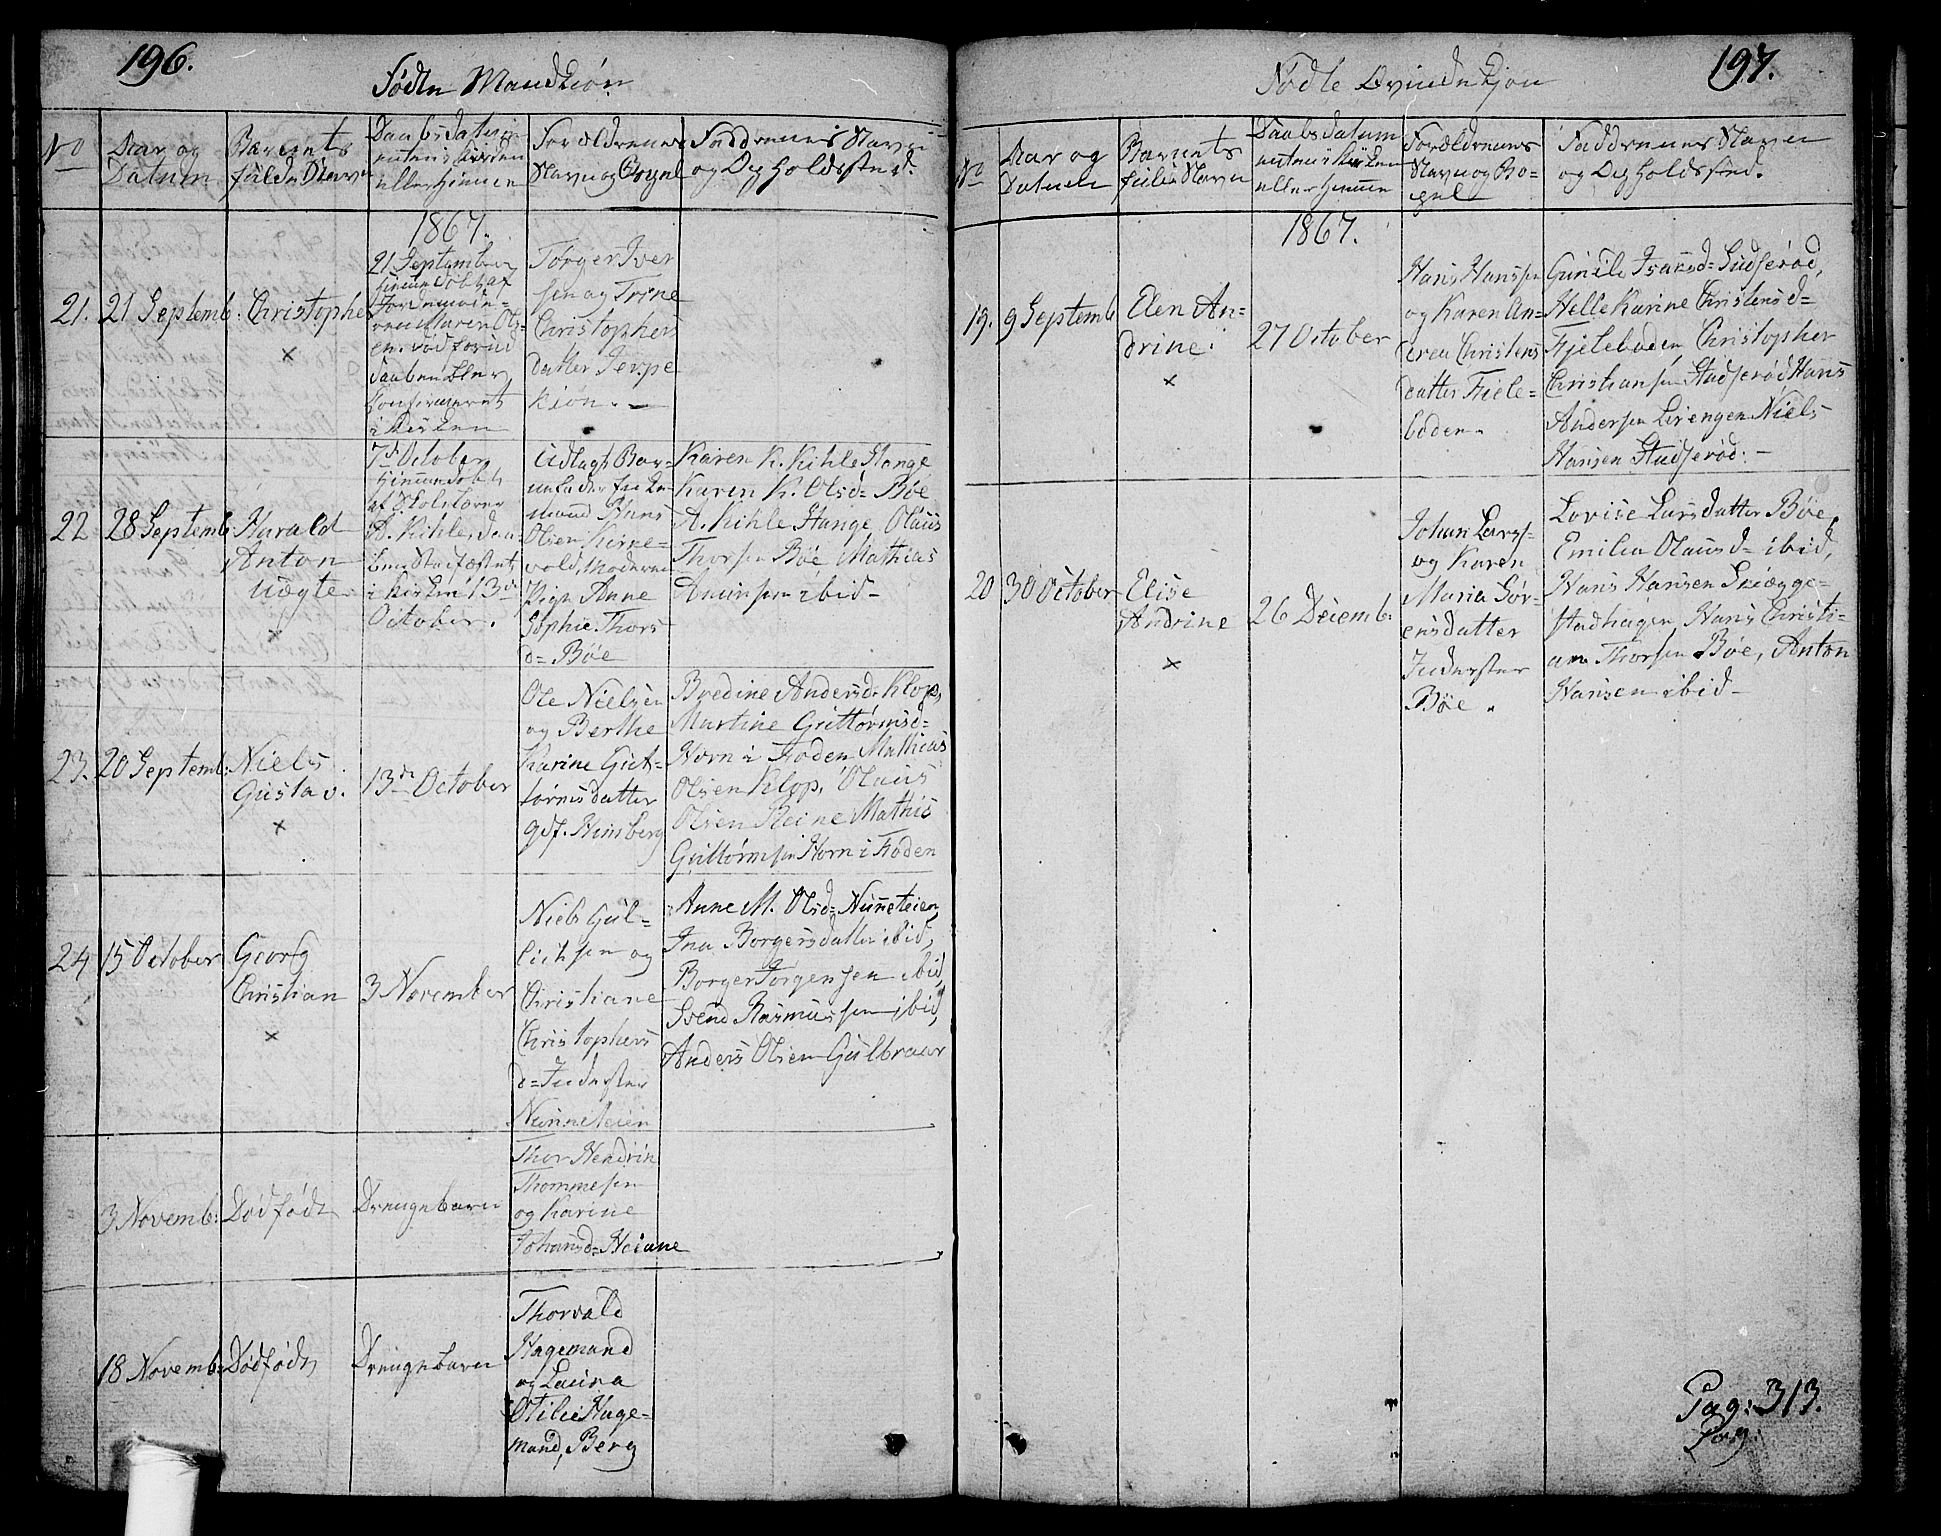 196.
Fødte Mandkiøn
No
Aar og
Datum
Barnets
fulde Navn
Daabsdatum
enten i Kirken
eller Hiemme
Forældrenes
Navne og Bopæl
Faddernes Navne
og Opholdssted.
1867.
21.
21 Septemb:
Christopher
×
21 Septemb
hiemmedøbt af
Jordemode-
ren Maren Ols-
en. Rød forend
Daaben blev
Confirmeret
i Kirken
Torger Iver
sen og Trine
Christophers
datter Jerpe
kiøn.
22
28 Septemb
Harald
Anton
uægte
×
7de October
Hiemmedøbt
af Skolelærer
A. Kihle, Daa-
ben Stadfæstet
i kirken 13de
October.
Udlagt Bar-
nefader
Hans
Olsen
Moderen
Pige Anne
Sophie Thors
d= Bøe
Karen K. Kihle Stange
Karen K. Olsd= Bøe
A. Kihle Stange, Olaus
Thorsen Bøe Mathias
Amunsen ibid-
23.
20 Septemb:
Niels
Gustav.
×
13de October
Ole Nielsen
og Berthe
Karine Gut-
tormsdatter
gdf. Himberg
Bredine Andersd. Klop,
Martine Guttormsd=
Horn i Foden Mathias
Olsen Klop, Olaus
Olsen Mathis
Guttormsen Horn i Foden
24
15 October
Georg
Christian
×
3 November
Niels Gul-
lichsen og
Christiane
Christophers
d= Inderster
Nunneteien
Anne M. Olsd= Nunneteien,
Ina Borgersdatter ibid,
Borger Jorgensen ibid,
Svend Rasmussen ibid,
Anders Olsen Gulbraar
3 Novemb:
Dødfødt
Drengebarn
Thor Hendrik
Thommesen
og Karine
Johansd= Hoiane
18 Novemb:
Dødfødt
Drengebarn
Thorvald
Hagemand
og Laura
Otilie Hage-
mand, Berg
197.
Fødte Qvindekjøn
No
Aar og
Datum
Barnets
fulde Navn
Daabsdatum
enten i Kirken
eller Hiemme
Forældrenes
Navne og Bo-
pæl
Faddernes Navne
og Opholdssted.
1867.
19.
9 Septemb
Elen An-
drine.
×
27 October
Hans Hanssen
og Karen An-
drea Christens
datter Fiele-
boden.
Gunild Isaksd= Studserød,
Helle Karine Christensd=
Fjeleboden Christopher
Christiansen Studserød Hans
Andersen Niels
Hansen Studserød. -
20
30 October
Elise
Andrine
×
26 Decemb:
Johan Lars-
og Karen
Maria Sør-
ensdatter
Inderster
Bøe.
Lovise Larsdatter Bøe,
Emilie Olausd= ibid,
Hans Hansen Skiægge-
stadhagen Hans Christi-
an Thorsen Bøe, Anton
Hansen ibid-
Pag: 313.